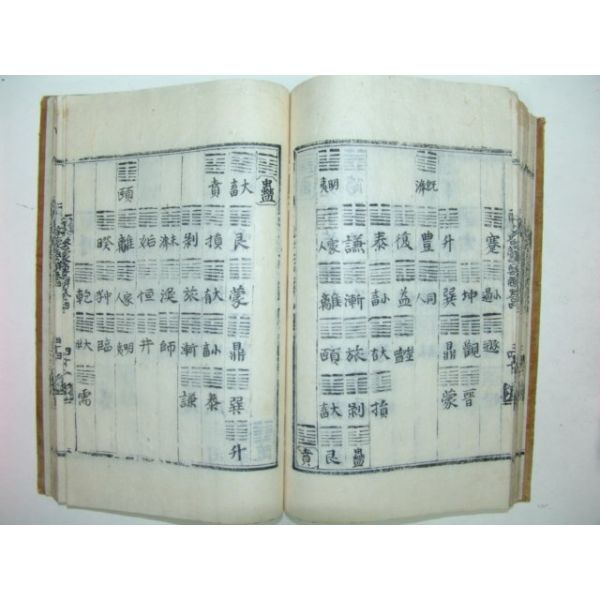 蹇 小過 遯
坤 觀 晉
升 巽 鼎 蒙
既濟 豐 同人
復 益
泰 小畜 大有 損
謙 漸 旅 剝 蠱
明夷 家人 離 頤 大畜 艮
賁
蠱
大畜 艮 蒙 鼎 巽 升
賁 損 大有 小畜 泰
剝 旅 漸 謙
未濟 渙 師
姤 恒 井
頤 離 家人 明夷
睽 中孚 臨
乾 大壯 需